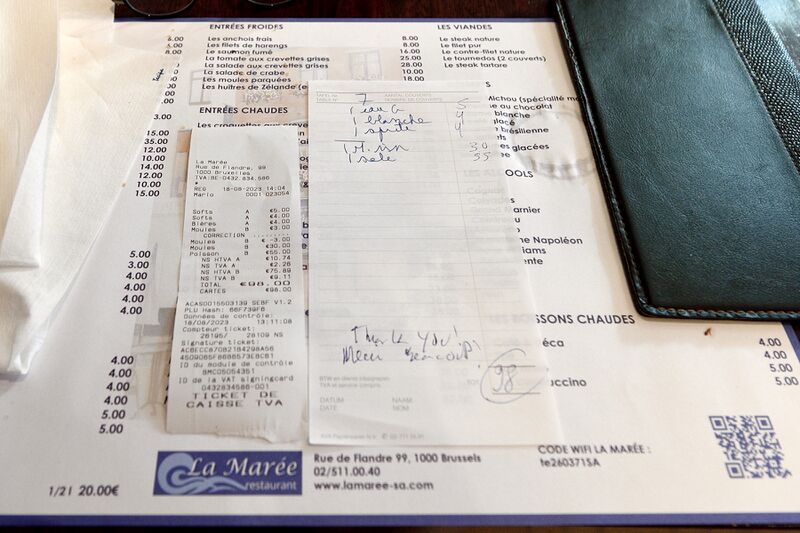 ENTRÉES FROIDES
Les anchois frais 8.00
Les filets de harengs 8.00
Le saumon fumé 16.00
La tomate aux crevettes grises 25.00
La salade aux crevettes grises 28.00
La salade de crabe 10.00
Les moules parquées 18.00
Les huîtres de Zélande
ENTRÉES CHAUDES
Les croquettes aux crevettes
LES VIANDES
Le steak nature
Le filet pur
Le contre-filet nature
Le tournedos (2 couverts)
Le steak tartare
6.00
5.00
15.00
35.00
12.00
14.00
12.00
10.00
15.00
5.00
4.00
4.00
4.00
4.00
4.00
4.00
5.00
5.00
La Marée
Rue de Flandre, 99
1000 Bruxelles
TVA:BE-0432.834.586
*
REG 18-08-2023 14:04
Mario 0001 023054
Softs A €5.00
Softs A €4.00
Bières A €4.00
Moules B €3.00
CORRECTION
Moules B € -3.00
Moules B €30.00
Poisson B €55.00
NS HTVA A €10.74
NS TVA A €2.26
NS HTVA B €75.89
NS TVA B €9.11
TOTAL €98.00
CARTES €98.00
ACAS0015503139 SEBF V1.2
PLU Hash: 66F739F6
Données de contrôle:
18/08/2023 13:11:08
Compteur ticket:
26195/ 28109 NS
Signature ticket:
ID du module de contrôle
BMC05054351
ID de la VAT signingcard
0432834586-001
TICKET DE
CAISSE TVA
TABLE N° 7
AANTAL COUVERTS
NOMBRE DE COUVERTS
1 eau G 5
1 blanche 4
1 sprite 4
1 M. vin 30
1 sole 55
Thank you!
Merci Beaucoup!
98
BTW en dienst inbegrepen
TVA et service compris
DATUM
DATE
NAAM
NOM
Michou (spécialité
au chocolat
blanche
glacé
brésilienne
glacées
ALCOOLS
Calvados
Grand Marnier
Napoléon
BOISSONS CHAUDES
4.00
4.00
4.00
5.00
5.00
5.00
1/2 l 20.00€
La Marée
restaurant
Rue de Flandre 99, 1000 Brussels
02/511.00.40
www.lamaree-sa.com
CODE WIFI LA MARÉE :
te260371SA